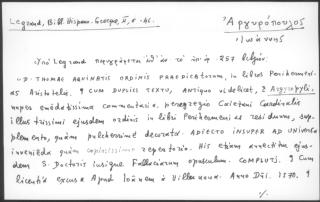 Legrand, Bibl. Hispano-Grecque, II, σ. 46.
Ἀργυρόπουλος
Ἰωάννης
Ὑπὸ Legrand περιγράφεται ὑπ' ἀρ. 257 βιβλίον:
-D. THOMAE AQUINATIS ORDINIS PRAEDICATORUM, in libros Perihermeni-
as Aristotelis. ꝯ CUM DUPLICI TEXTU, Antiquo videlicet, & Argyropyli,
nuper emēdatissima commentaria. peregregio Caietani Cardinalis
illustrissimi ejusdem ordinis in libri Perihermenias residuum, sup-
plemento, quàm pulcherrimè decorata. ADIECTO INSUPER AD UNIVERSA
invenienda quàm copiosissimo repertorio. His etiam annectitur ejus-
dem S. Doctoris insigne Fallaciarum opusculum. COMPLUTI. ꝯ Cum
licentia excusa Apud Ioānem à Villanova. Anno Dñi. 1570. ꝯ
./.